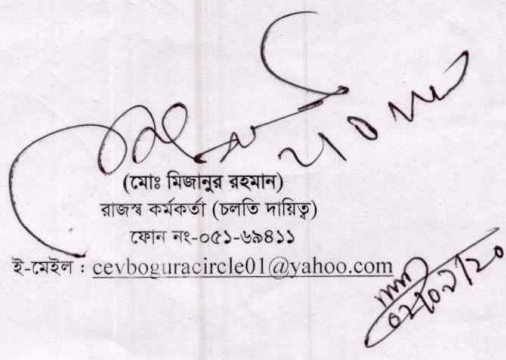 (মোঃ মিজানুর রহমান)
রাজস্ব কর্মকর্তা (চলতি দায়িত্ব)
ফোন নং-০৫১-৬৯৪১১
ই-মেইল : cevboguracircle01@yahoo.com